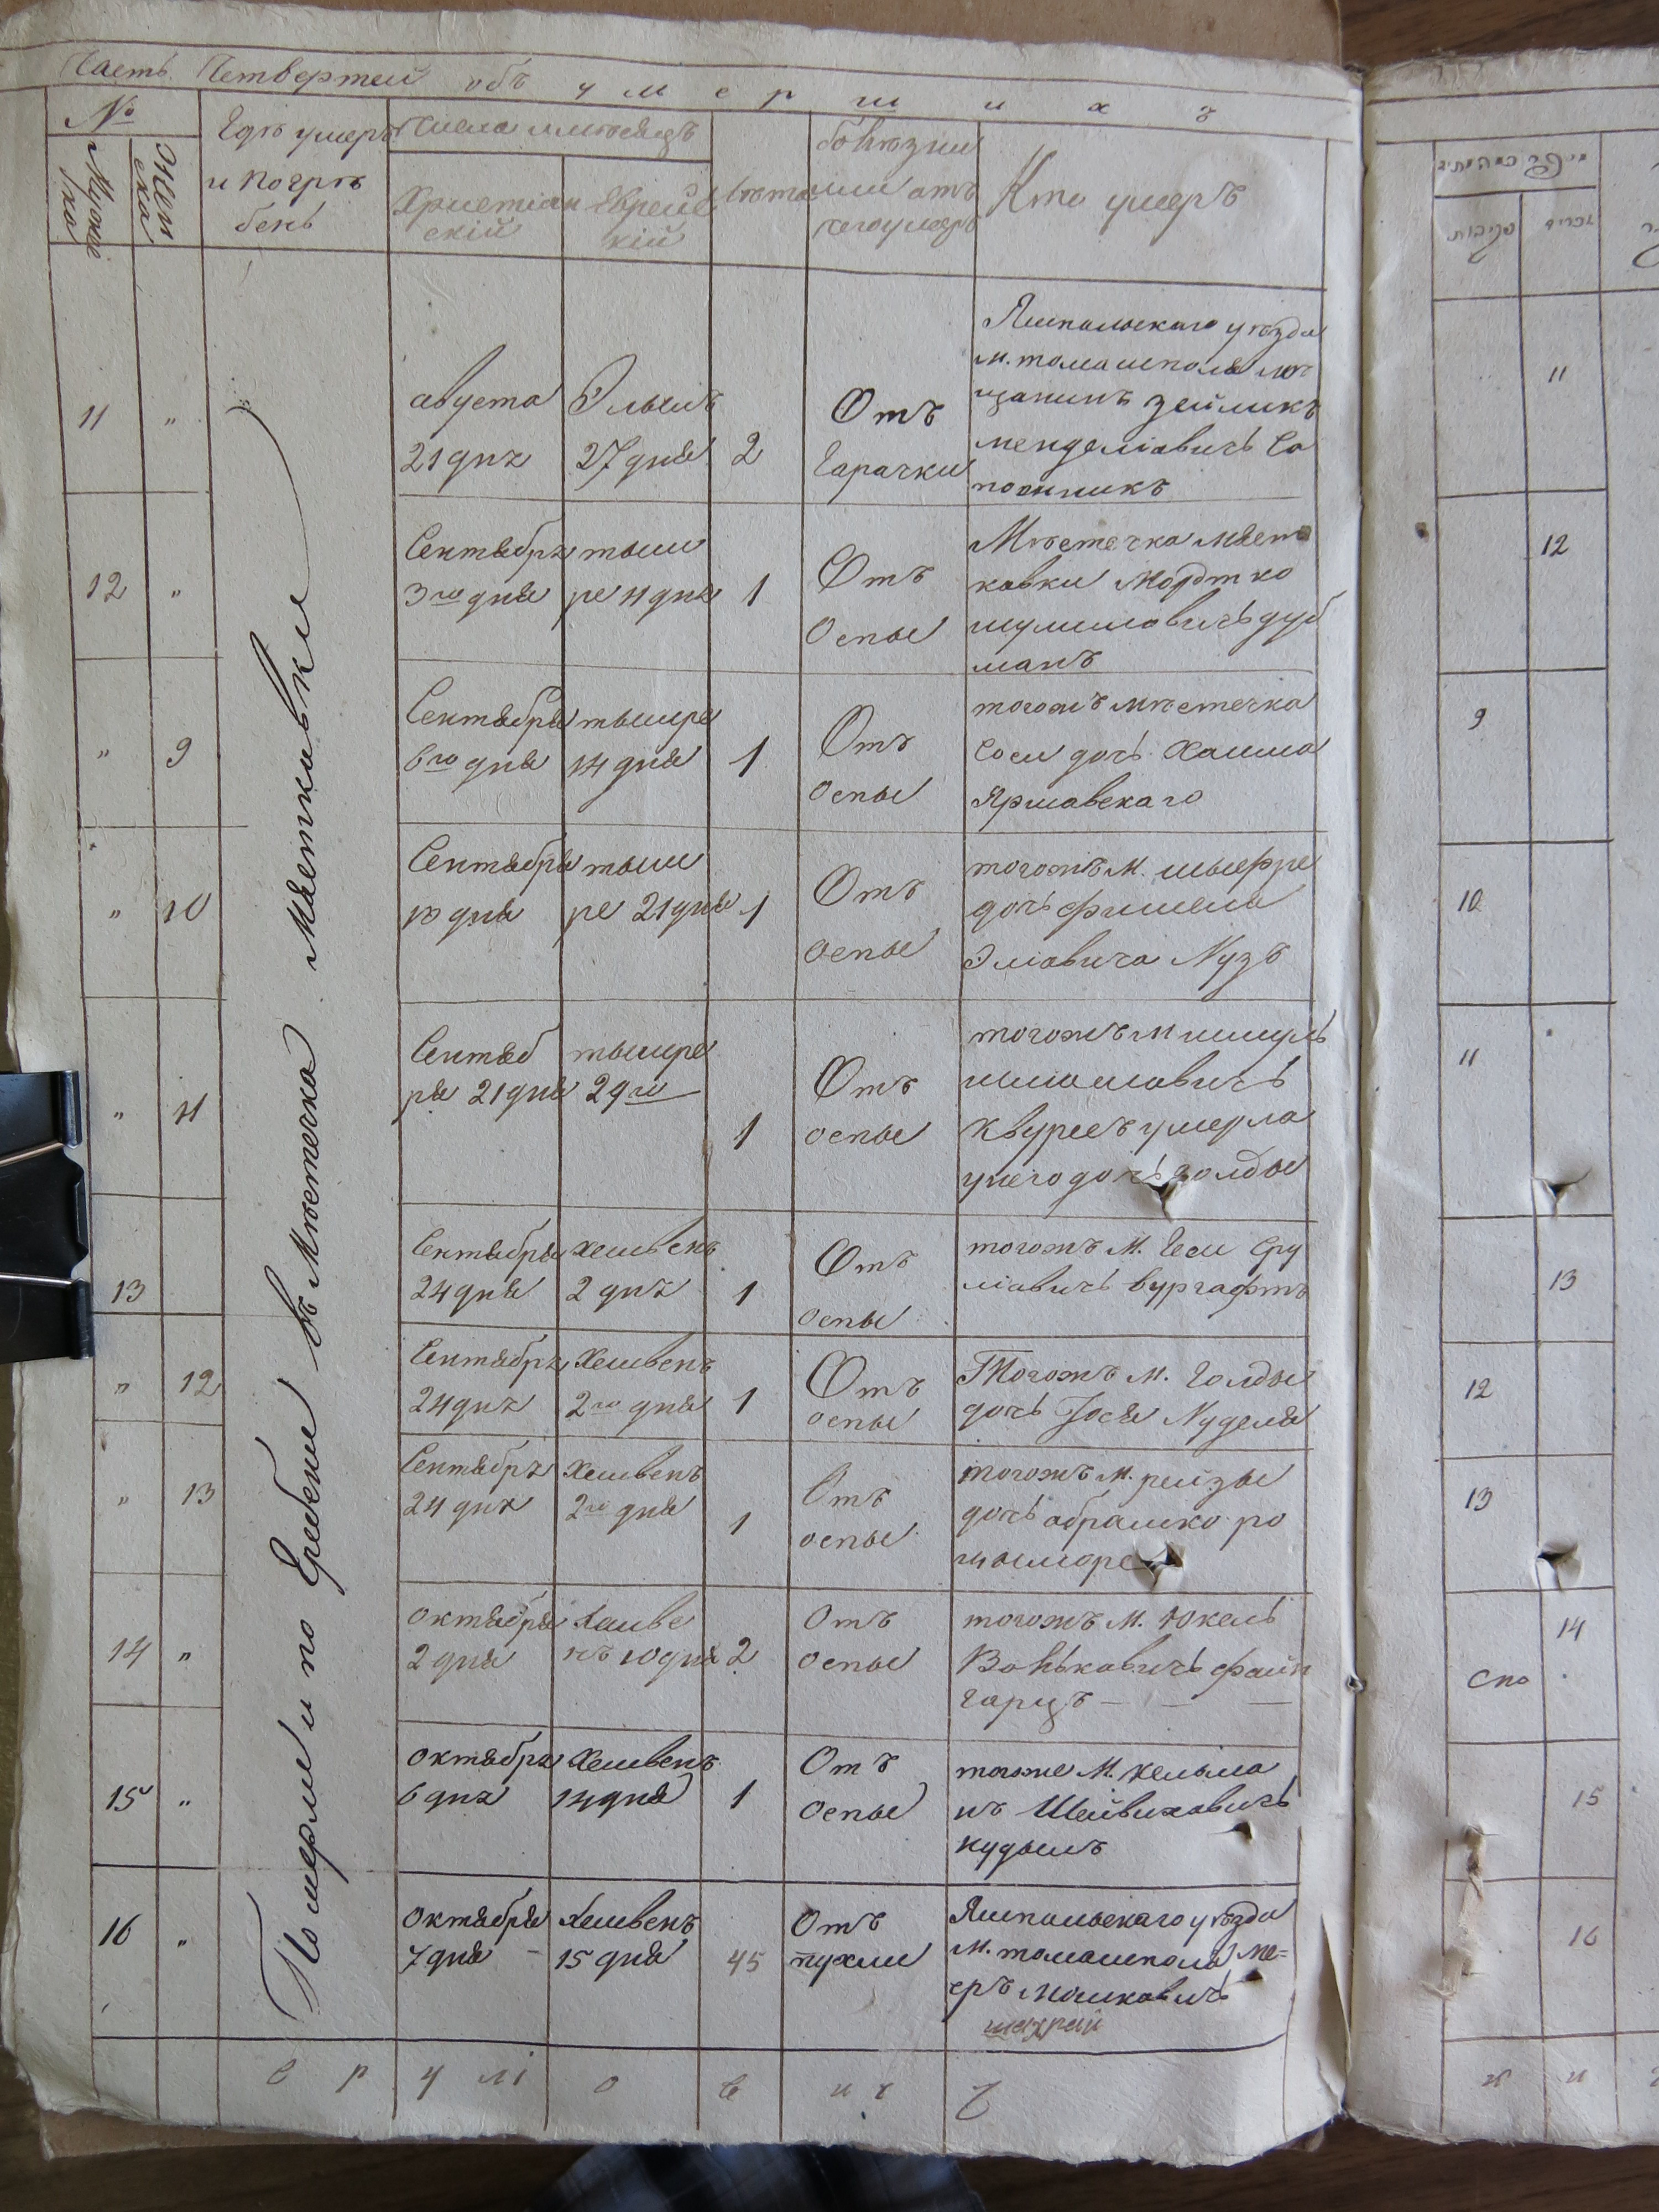 Часть Четвертей объ умершихъ
№
Мужескаго
Женска
Гдѣ умеръ
и погрѣ
бенъ
Число и мѣсяцъ
Христіан
скій
Еврейс
кій
Лѣта
болѣзни
или отъ
чего умеръ
Кто умеръ
Померли и по Грибени въ Мѣстечка Мястковки
11
"
августа
21 дня
Элылъ
27 дня
2
Отъ
Гарачки
Ямпольскаго уѣзда
м. томашполя мѣ
щанинъ Зейликъ
менделіовичь Са
пожникъ
12
"
Сентября
3го дня
тыш
ре 11 дня
1
Отъ
Оспы
Мѣстечка Мяст
ковки Мортко
шулимовичь дуб
манъ
"
9
Сентября
6го дня
тышре
14 дня
1
Отъ
оспы
тогожъ мѣстечка
Соси дочь Хаима
Яршавскаго
"
10
Сентября
13 дня
тыш
ре 21 дня
1
Отъ
оспы
тогожъ м. шыфре
дочь фишеля
Эліовича Нузъ
"
11
Сентяб
ря 21 дня
тышре
29го
1
Отъ
оспы
тогожъ м шмуль
шлиомовичь
Квурсъ умерла
у него дочь золды
13
Сентября
24 дня
хешвенъ
2 дня
1
Отъ
оспы
тогожъ м. Геси Сру
ліовичь бургафтъ
"
12
Сентября
24 дня
Хешвенъ
2го дня
1
Отъ
оспы
Тогожъ м. Голды
дочь Іося Нуделя
"
13
Сентября
24 дня
Хешвенъ
2го дня
1
Отъ
оспы
тогожъ м. рейзы
дочь абрамко
14
"
октября
2 дня
Хешве
нъ 10 дня
2
Отъ
оспы
тогожъ м. Юкель
Вольковичь файн
гарцъ — — —
15
"
октября
6 дня
Хешвенъ
14 дня
1
Отъ
оспы
тогоже м. кельма
нъ Шейвиховичь
кудышъ
16
"
октября
7 дня –
Хешвенъ
15 дня
45
Отъ
пухли
Ямпольскаго уѣзда
м. томашполя ме=
еръ мошковичь
шахрай
С р у лі о в и ч ъ
11
12
9
10
11
13
12
13
14
15
16